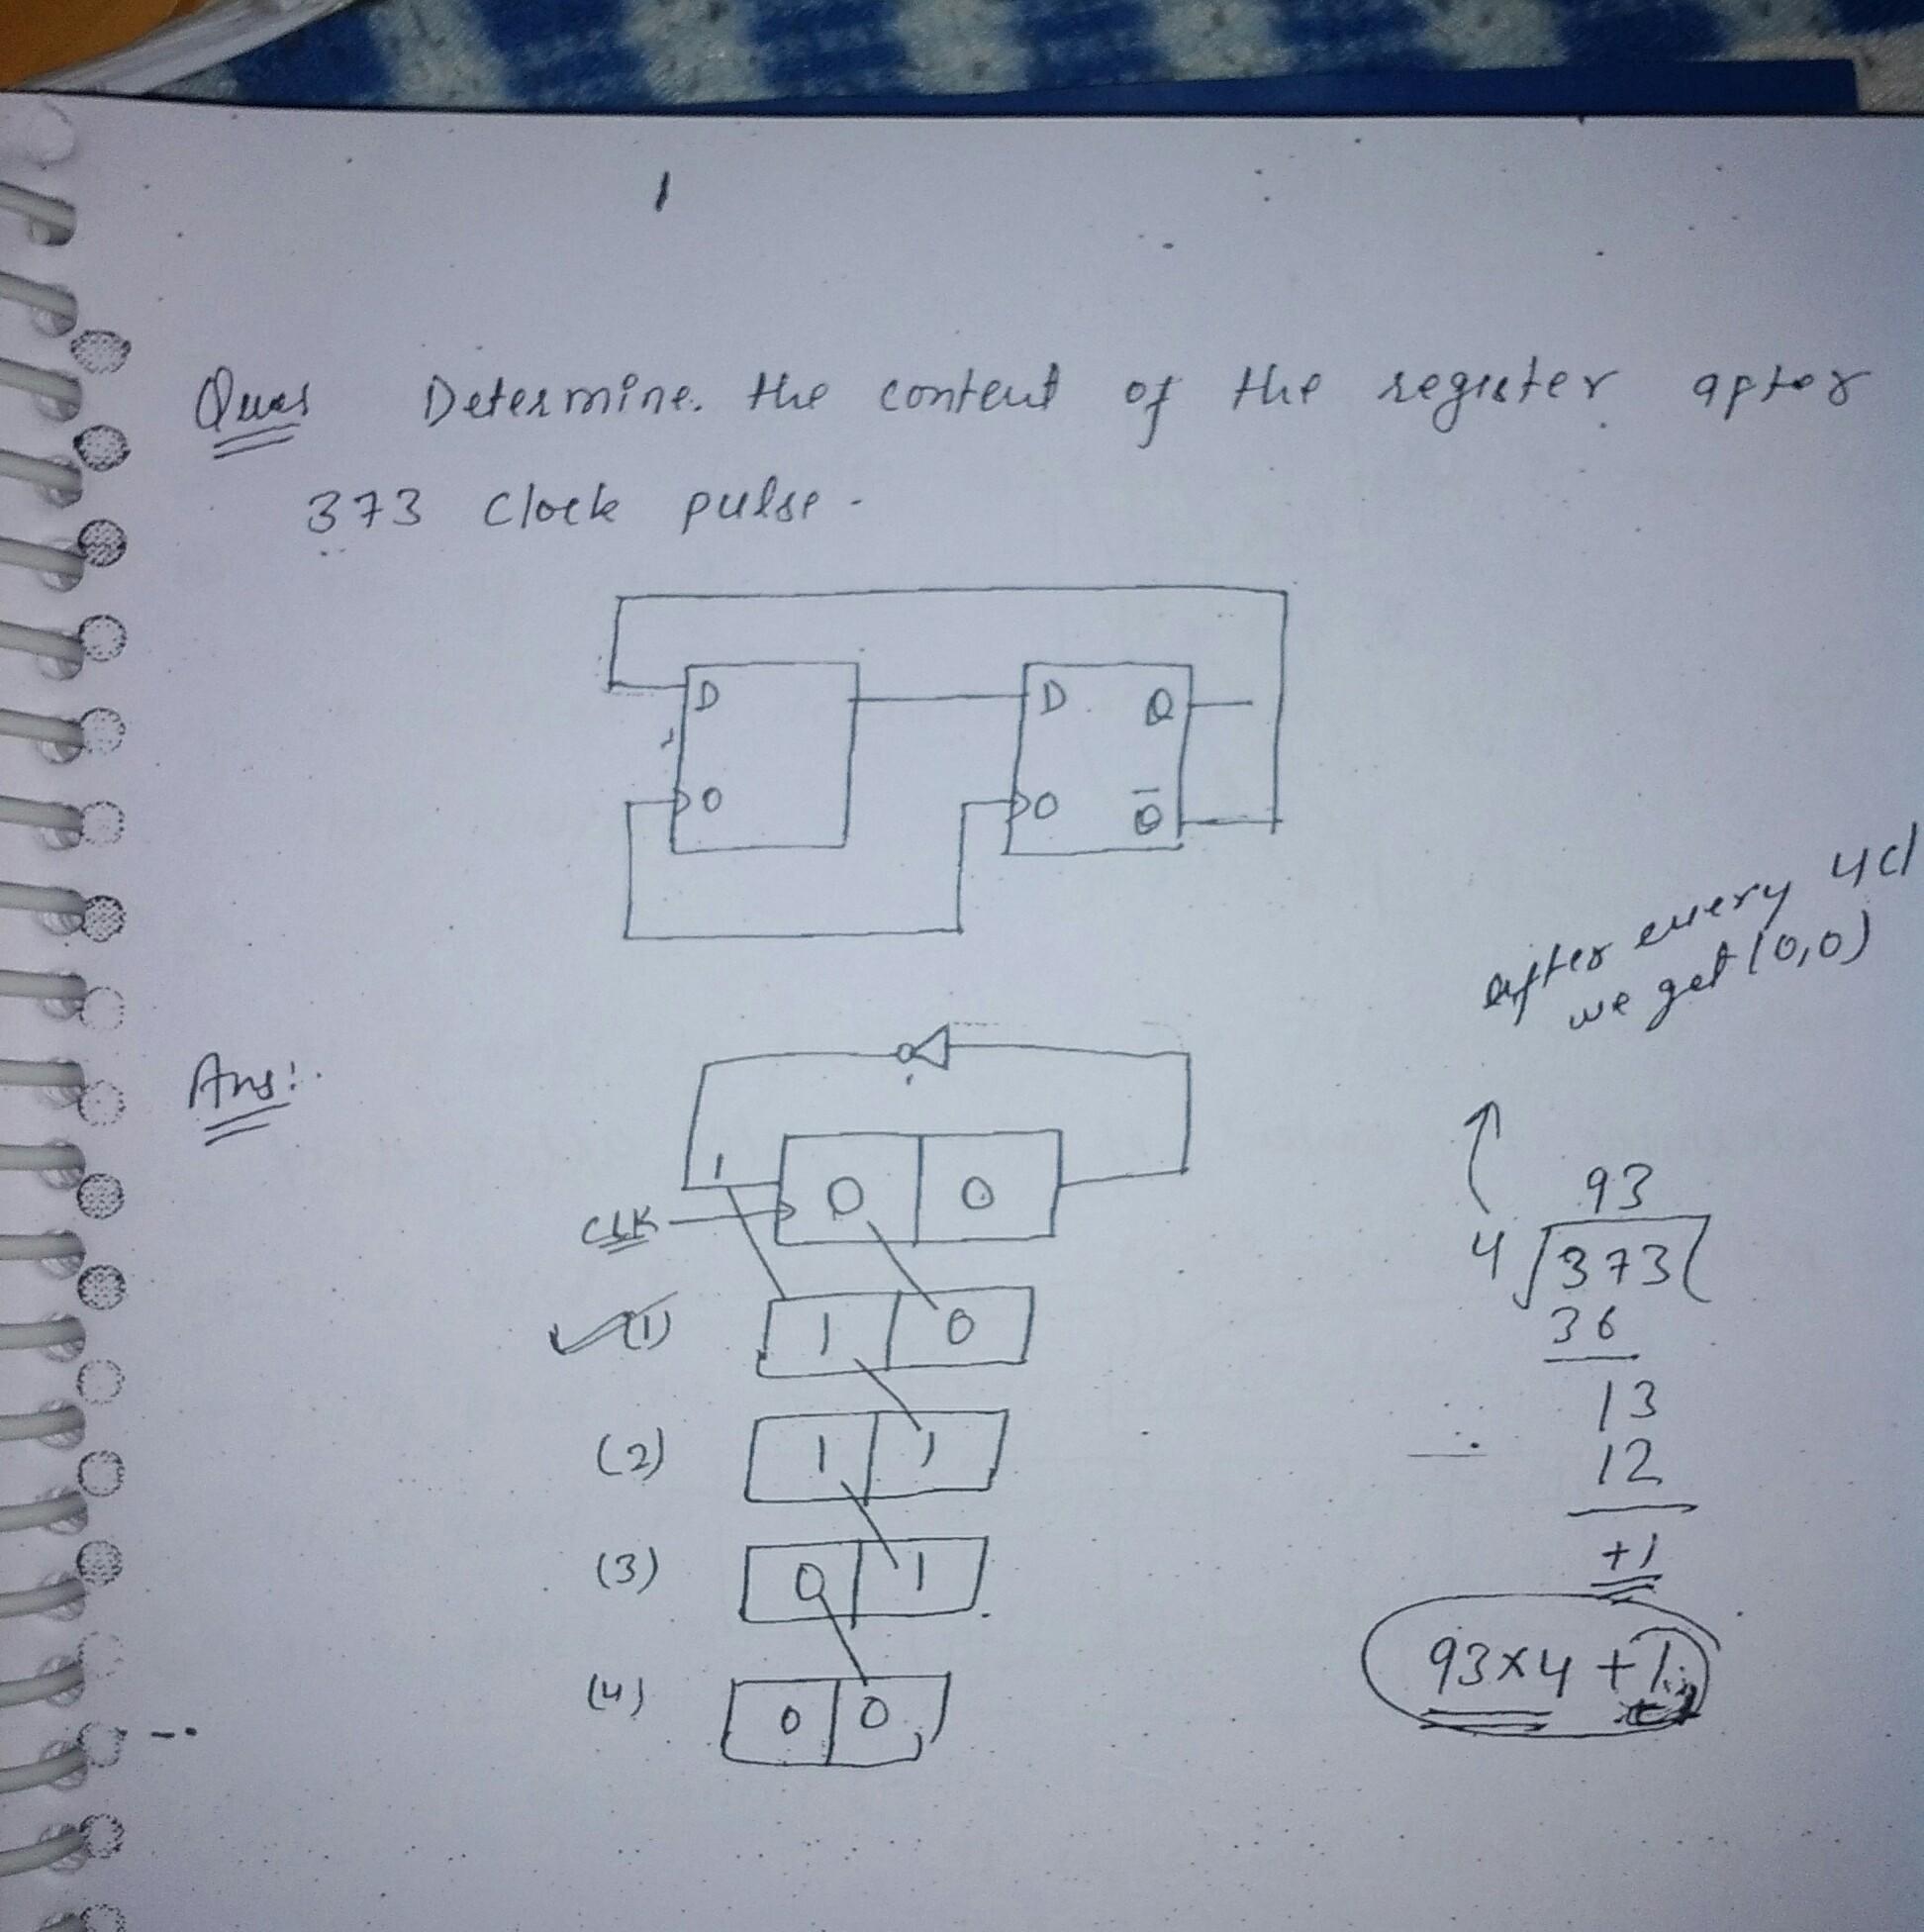 Ques Determine. the content of the register after
373 Clock pulse.
D D Q
0 0 Q̅
after every 4cl
we get (0,0)
Ans:
1 0 0
CLK
(1) 1 0
(2) 1 1
(3) 0 1
(4) 0 0
93
4 373
36
13
12
+1
93x4 +1